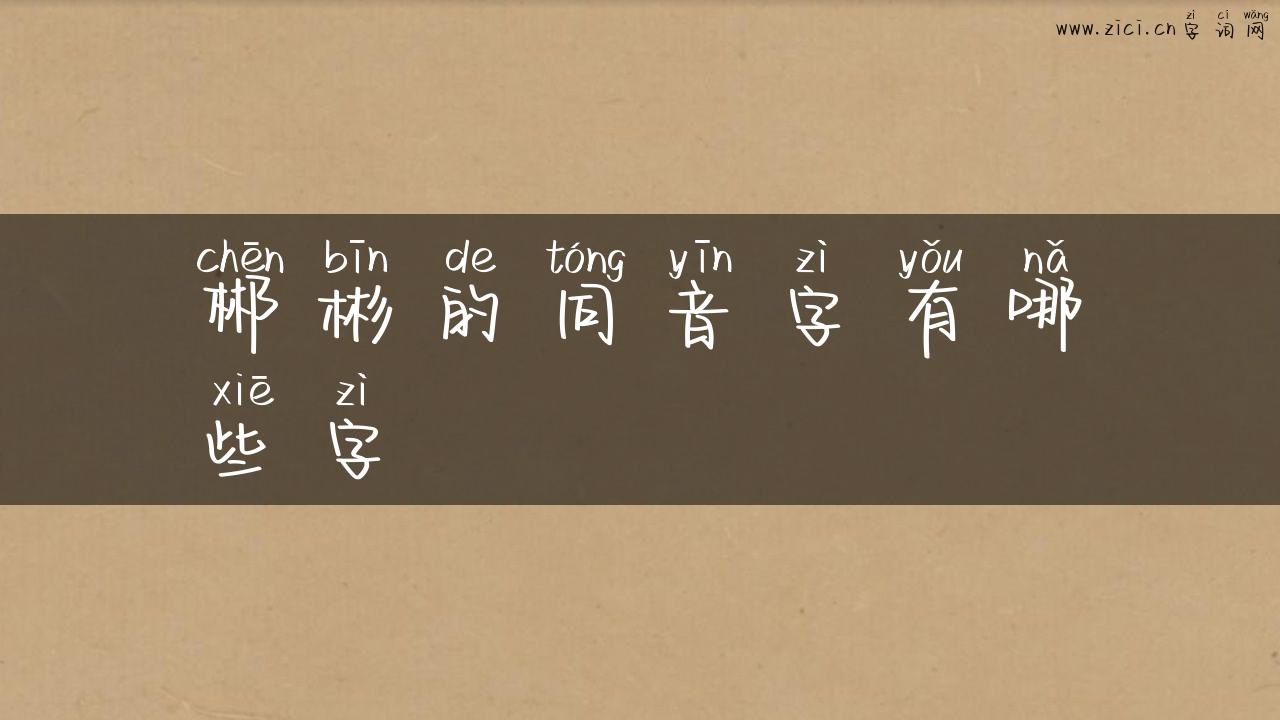 zì cí wǎng
www.zici.cn 字词网
chēn bīn de tóng yīn zì yǒu nǎ
郴彬的同音字有哪
xiē zì
些字